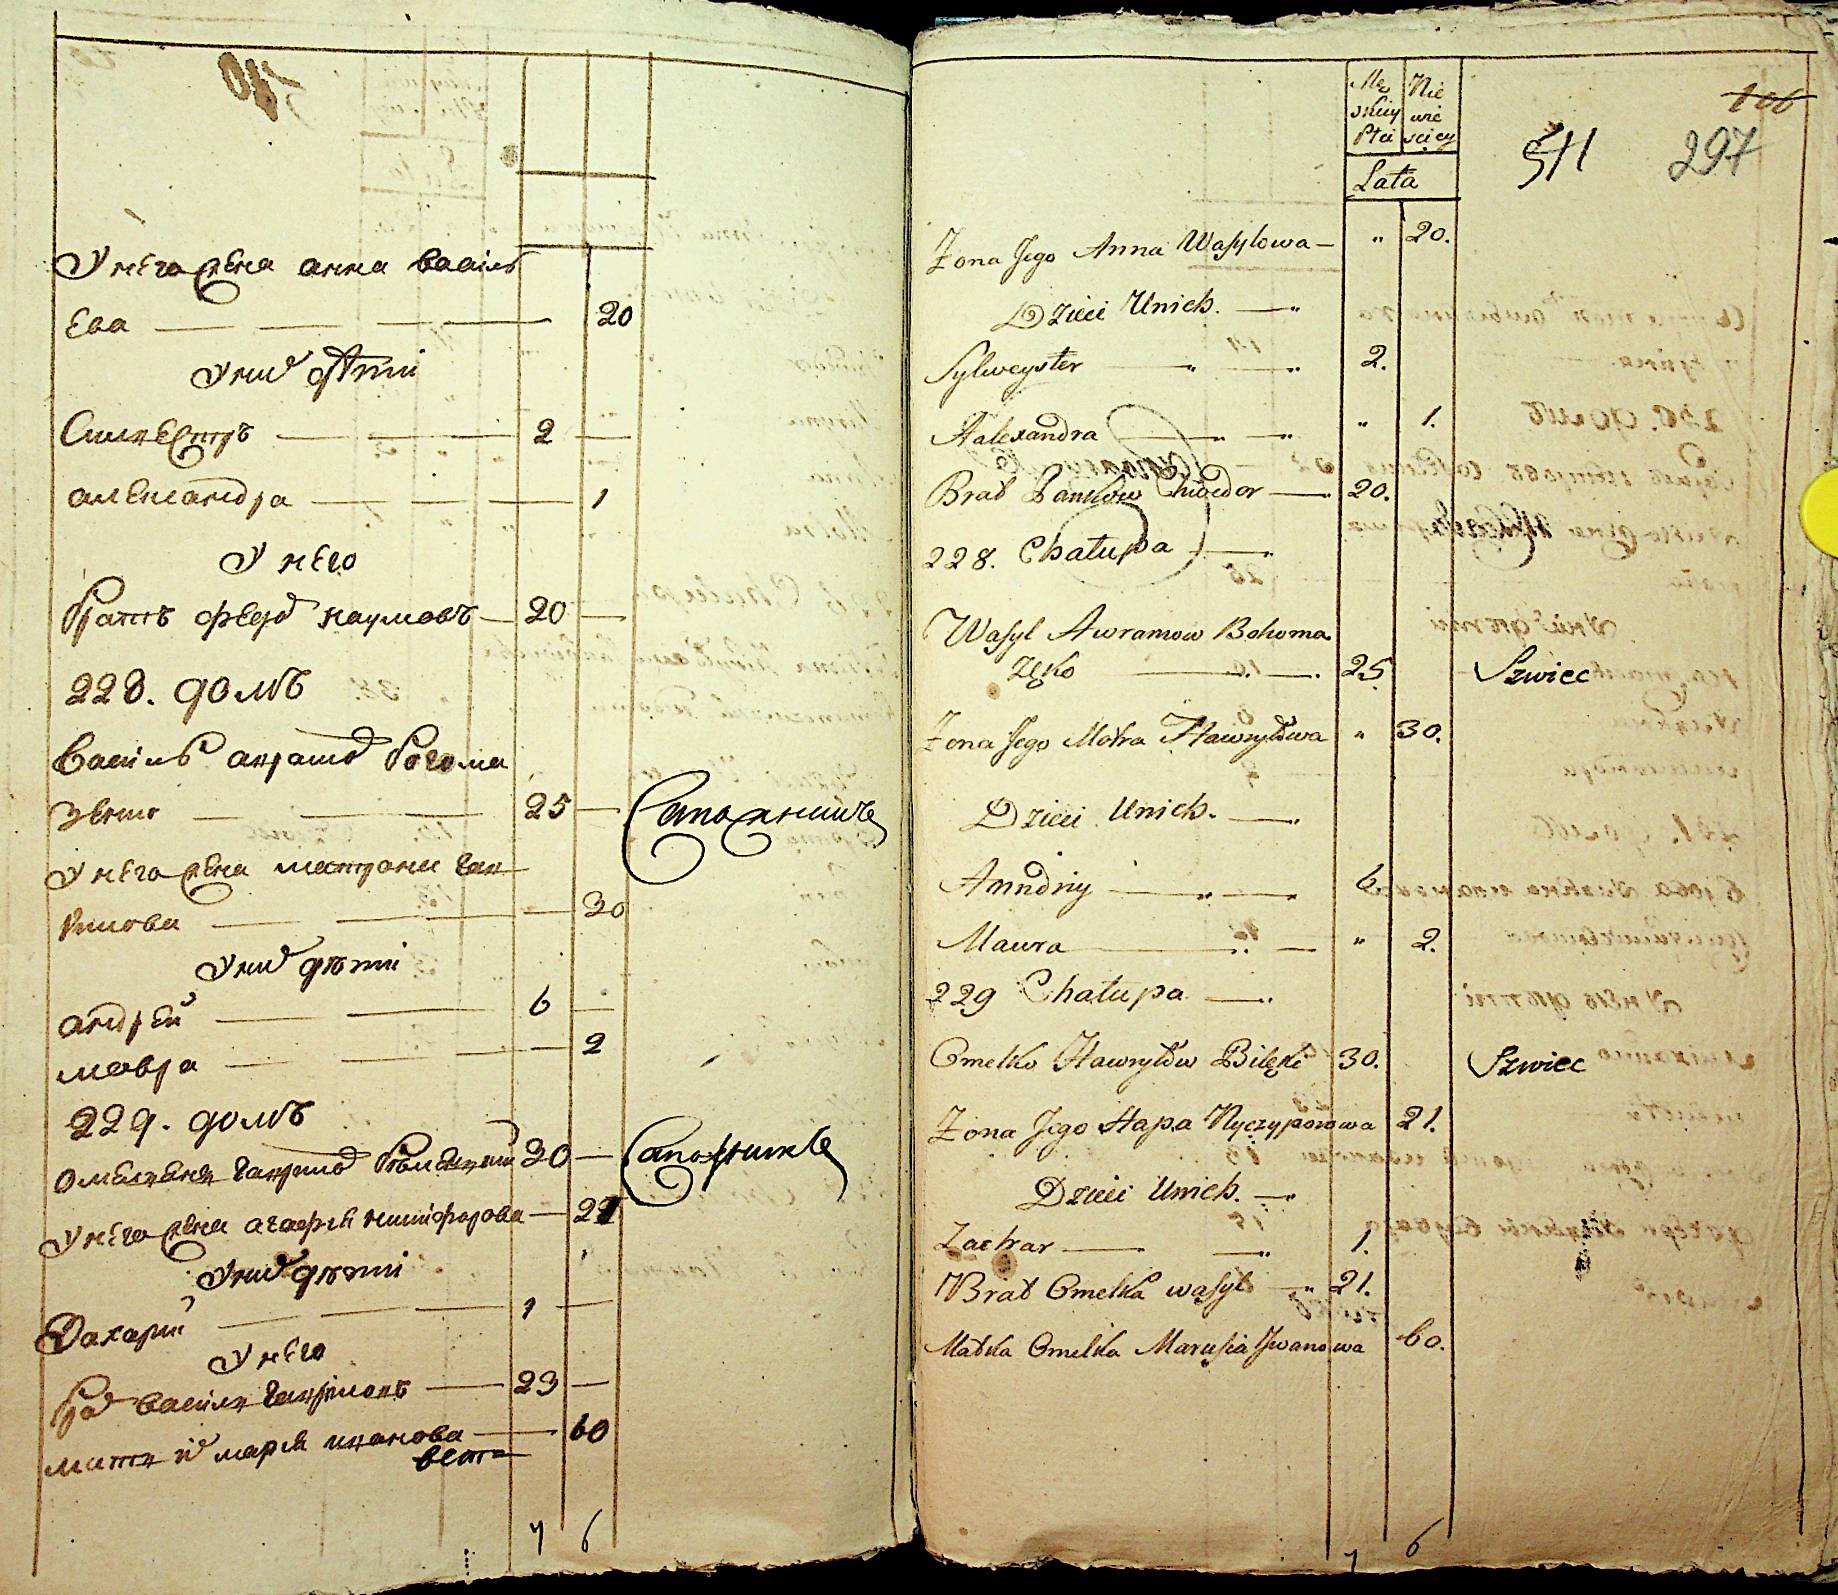 У него жена анна василь
Ева — 20
У них дѣти
Силвестръ — 2 —
александра — 1
У него
братъ Федоръ наумовъ — 20 —
228. домъ
василь аврамовъ богома
зенко — 25 — Сапожникъ
У него жена матрона гав
рилова — 30
У них дѣти
андрей — 6 —
мавра — 2
229. домъ
омельянъ гавриловъ 30 — Сапожникъ
У него жена агафия никифорова — 21
У них дѣти
Захарий — 1 —
У него
брат василь гавриловъ — 23 —
мать их мария иванова — 60
7 6
Mę Nie
skiey wie
Płci sciey
106
297
Lata
Żona Jego Anna Wasylowa — " 20.
Dzieci Unich. — "
Sylweyster — " — " 2.
Aalexandra — " — " " 1.
Brat Pankow Chwedor — 20.
228. Chałupa —
Wasyl Awramow Bohoma
zęko — 25. Szwiec
Żona Jego Motra Hawryłowa " 30.
Dzieci Unich. —
Anndriy — " — 6.
Mawra — " 2.
229 Chałupa —
Omelko Hawryłow Bilęki 30. Szwiec
Żona Jego Hapa Nyczyporowa 21.
Dzieci Unich. —
Zachar — 1.
Brat Omelka wasyl — " 21.
Matka Omelka Marusia Iwanowa 60.
7 6